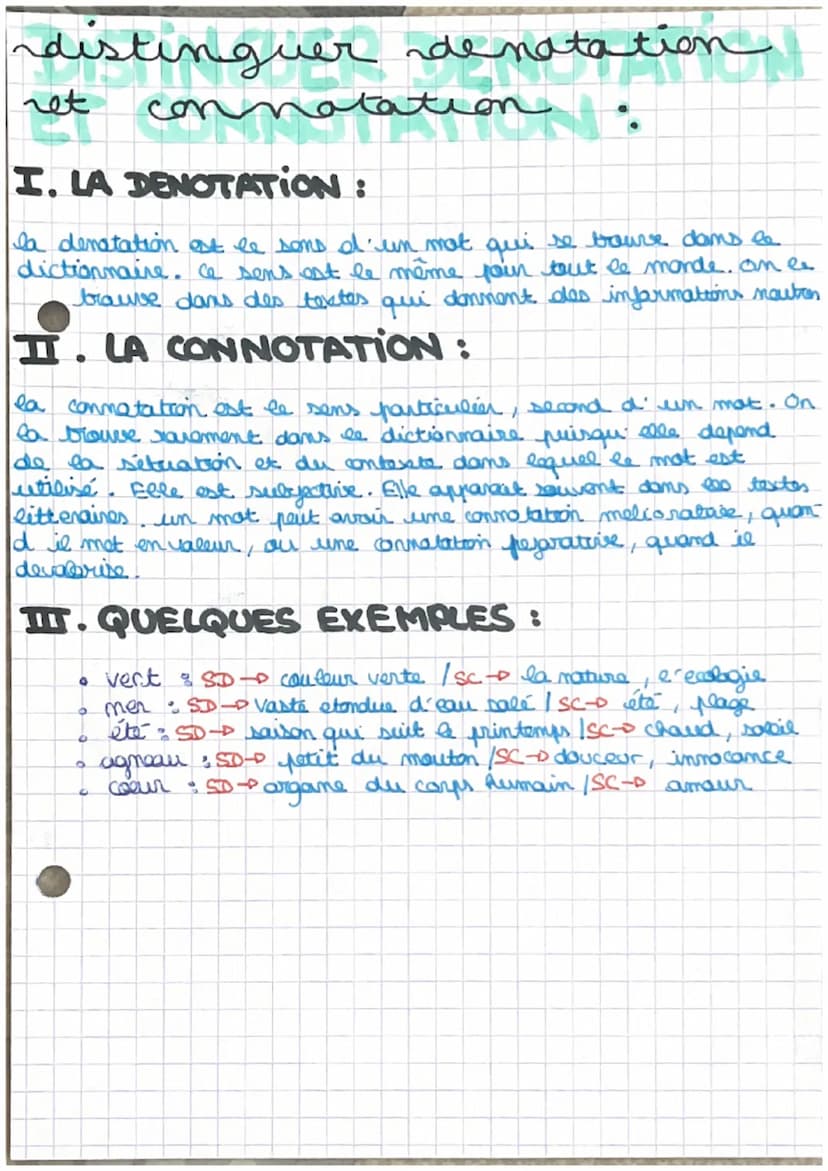 distinguer denotation
et connotation :
DISTINGUER DENOTATION
ET CONNOTATION :
I. LA DENOTATION :
la denotation est le sens d'un mot qui se trouve dans le
dictionnaire. ce sens est le même pour tout le monde. on le
trouve dans des textes qui donnent des informations neutres
II. LA CONNOTATION :
la connotation est le sens particulier, second d'un mot. On
la trouve rarement dans le dictionnaire puisqu'elle depend
de la situation et du contexte dans lequel le mot est
utilisé. Elle est subjective. Elle apparait souvent dans les textes
litteraires. un mot peut avoir une connotation meliorative, quan
d il met en valeur, ou une connotation pejorative, quand il
devalorise.
III. QUELQUES EXEMPLES :
• vert : SD → couleur verte / SC → la nature, l'ecologie
• mer : SD → vaste etendue d'eau salé / SC → été, plage
• été : SD → saison qui suit le printemps / SC → chaud, soleil
• agneau : SD → petit du mouton / SC → douceur, innocence
• coeur : SD → organe du corps humain / SC → amour